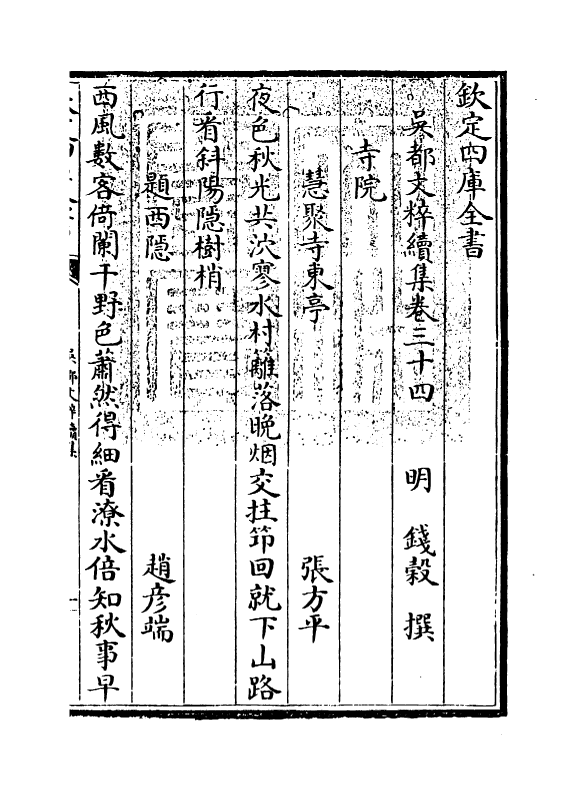 欽定四庫全書
吳都文粹續集卷三十四　明　錢穀　撰
寺院
慧聚寺東亭　張方平
夜色秋光共泬寥水村籬落晚烟交拄笻回就下山路
行看斜陽隱樹梢
題西隱　趙彥端
西風數客倚闌干野色蕭然得細看潦水倍知秋事早
吳都文粹續集